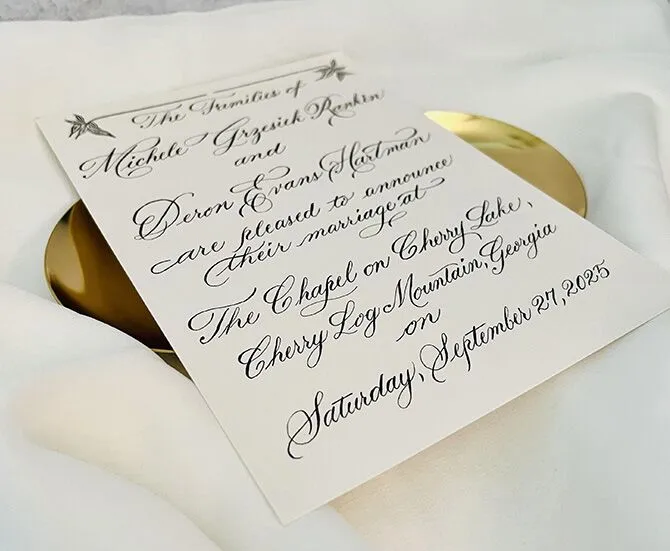 The Families of
Michele Grzesiek Rankin
and
Deron Evans Hartman
are pleased to announce
their marriage at
The Chapel on Cherry Lake,
Cherry Log Mountain, Georgia
on
Saturday, September 27, 2025